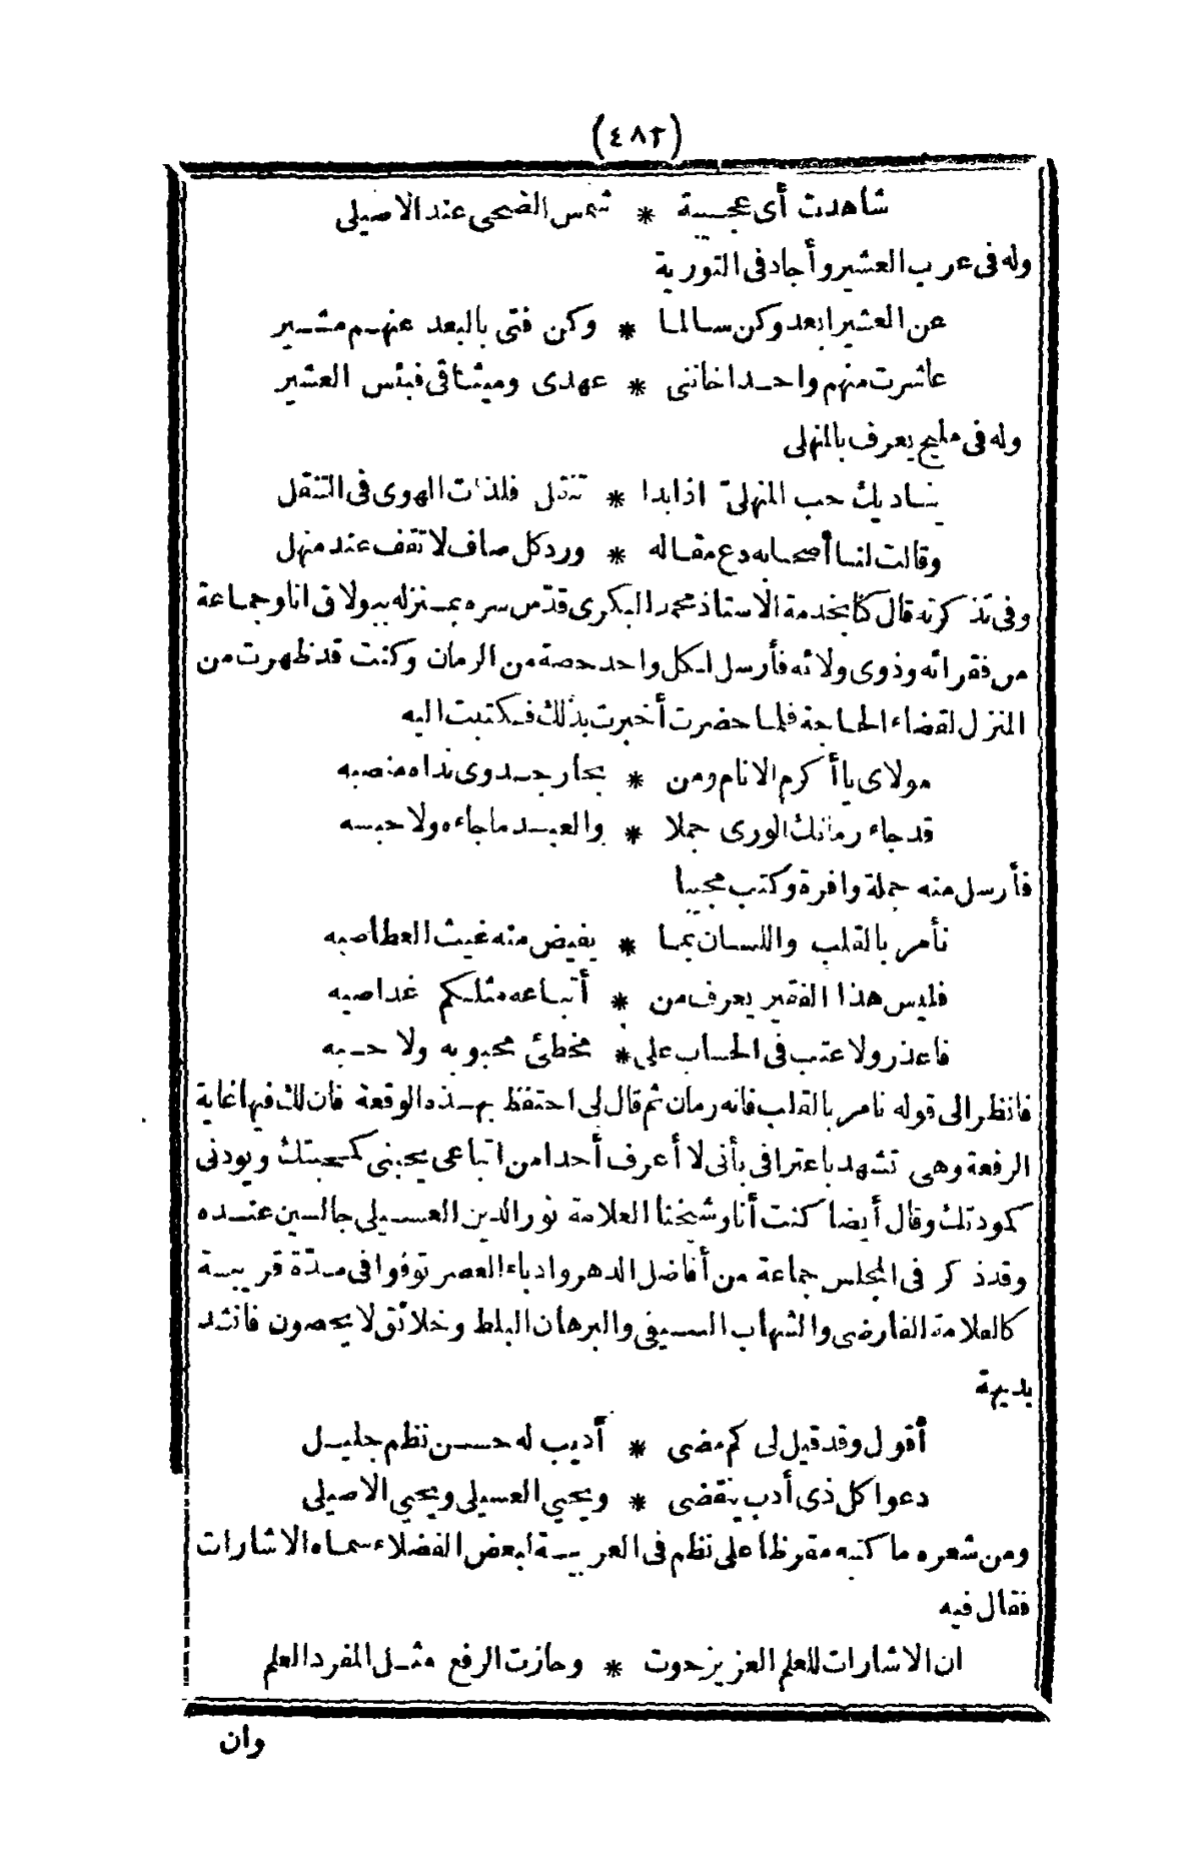 (٤٨٢)
شاهدت أى عجيبة * شمس الضحى عند الاصيلى
وله فى عرب العشير وأجاد فى التورية
عن العشير ابعد وكن سالما * وكن فتى بالبعد عنهم مشير
عاشرت منهم واحدا خاننى * عهدى وميثاقى فبئس العشير
وله فى مليح يعرف بالمنهلى
يناديك حب المنهلىّ اذا بدا * تنقل فلذات الهوى فى التنقل
وقالت لنا أصحابه دع مقاله * ورد كل صاف لا تقف عند منهل
وفى تذكرته قال كنا بخدمة الاستاذ محمد البكرى قدّس سره بمنزله ببولاق انا وجماعة
من فقرائه وذوى ولائه فأرسل لكل واحد حصة من الرمان وكنت قد ظهرت من
المنزل لقضاء الحاجة فلما حضرت أخبرت بذلك فكتبت اليه
مولاى يا أكرم الانام ومن * بحار جدوى نداه منصبه
قد جاء رمانك الورى جملا * والعبد ما جاءه ولا حبسه
فأرسل منه جملة وافرة وكتب مجيبا
نأمر بالقلب واللسان بما * يفيض منه غيث العطا صبه
فليس هذا الفقير يعرف من * أتباعه مثلكم غدا صبه
فاعذر ولا عتب فى الحساب على * مخطئ محبوبه ولا حسبه
فانظر الى قوله نامر بالقلب فانه رمان ثم قال لى احتفظ بهذه الوقعة فان لك فيها غاية
الرفعة وهى تشهد باعترافى بأنى لا أعرف أحدا من اتباعى يحبنى كمحبتك ويودنى
كمودتك وقال أيضا كنت أنا وشيخنا العلامة نور الدين العسيلى جالسين عنده
وقد ذكر فى المجلس جماعة من أفاضل الدهر وادباء العصر توفوا فى مدّة قريبة
كالعلامة الفارضى والشهاب السيفى والبرهان البلط وخلائق لا يحصون فانشد
بديهة
أقول وقد قيل لى كم مضى * أديب له حسن نظم جليل
دعوا كل ذى أدب ينقضى * ويحيي العسيلى ويحيي الاصيلى
ومن شعره ما كتبه مقرظا على نظم فى العربية لبعض الفضلاء سماه الاشارات
فقال فيه
ان الاشارات للعلم العزيز حوت * وحازت الرفع مثل المفرد العلم
وان